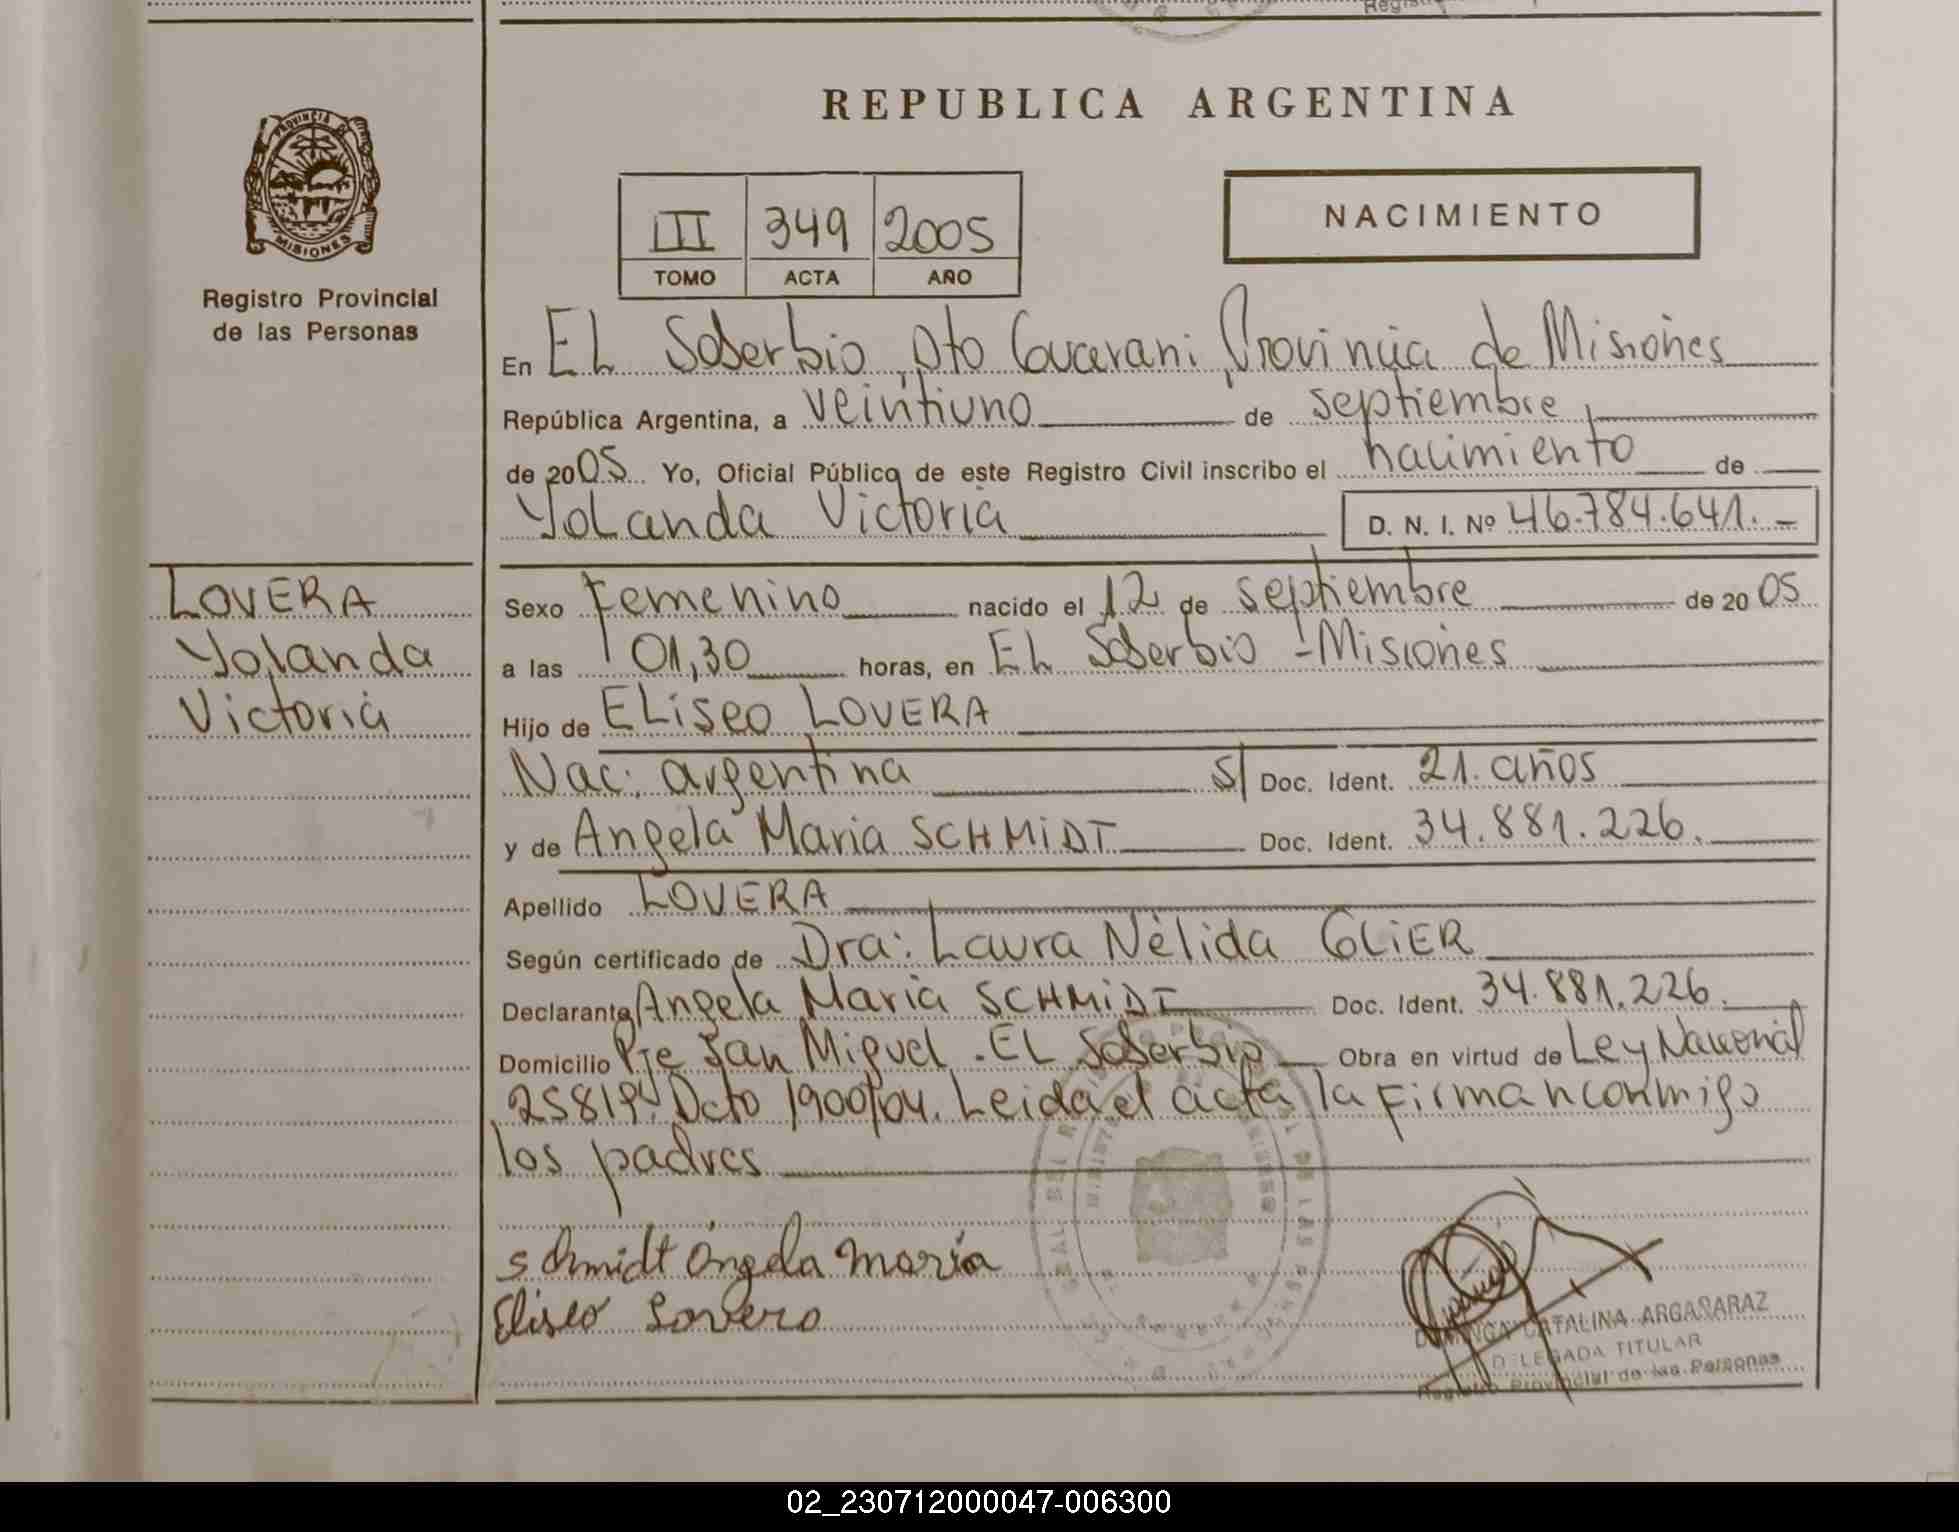 REPUBLICA ARGENTINA
PROVINCIA DE
MISIONES
Registro Provincial
de las Personas
III 349 2005
TOMO ACTA AÑO
NACIMIENTO
En EL Soberbio, Dto Guarani, Provincia de Misiones
República Argentina, a veintiuno de septiembre
de 2005 Yo, Oficial Público de este Registro Civil inscribo el nacimiento de
Yolanda Victoria D. N. I. Nº 46.784.641.-
LOVERA
Yolanda
Victoria
Sexo Femenino nacido el 12 de septiembre de 2005
a las 01,30 horas, en EL Soberbio - Misiones
Hijo de ELiseo LOVERA
Nac: argentina S/ Doc. Ident. 21. años
y de Angela Maria SCHMiDT Doc. Ident. 34.881.226.
Apellido LOVERA
Según certificado de Dra: Laura Nélida GLiER
Declarante Angela Maria SCHMiDT Doc. Ident. 34.881.226.
Domicilio Pje San Miguel. EL Soberbio Obra en virtud de Ley Nacional
25819. Dcto 1900/04. Leida el acta la firman conmigo
los padres
Schmidt Angela Maria
Eliseo Lovera
DOMINGA CATALINA ARGAÑARAZ
DELEGADA TITULAR
Registro Provincial de las Personas
02_230712000047-006300